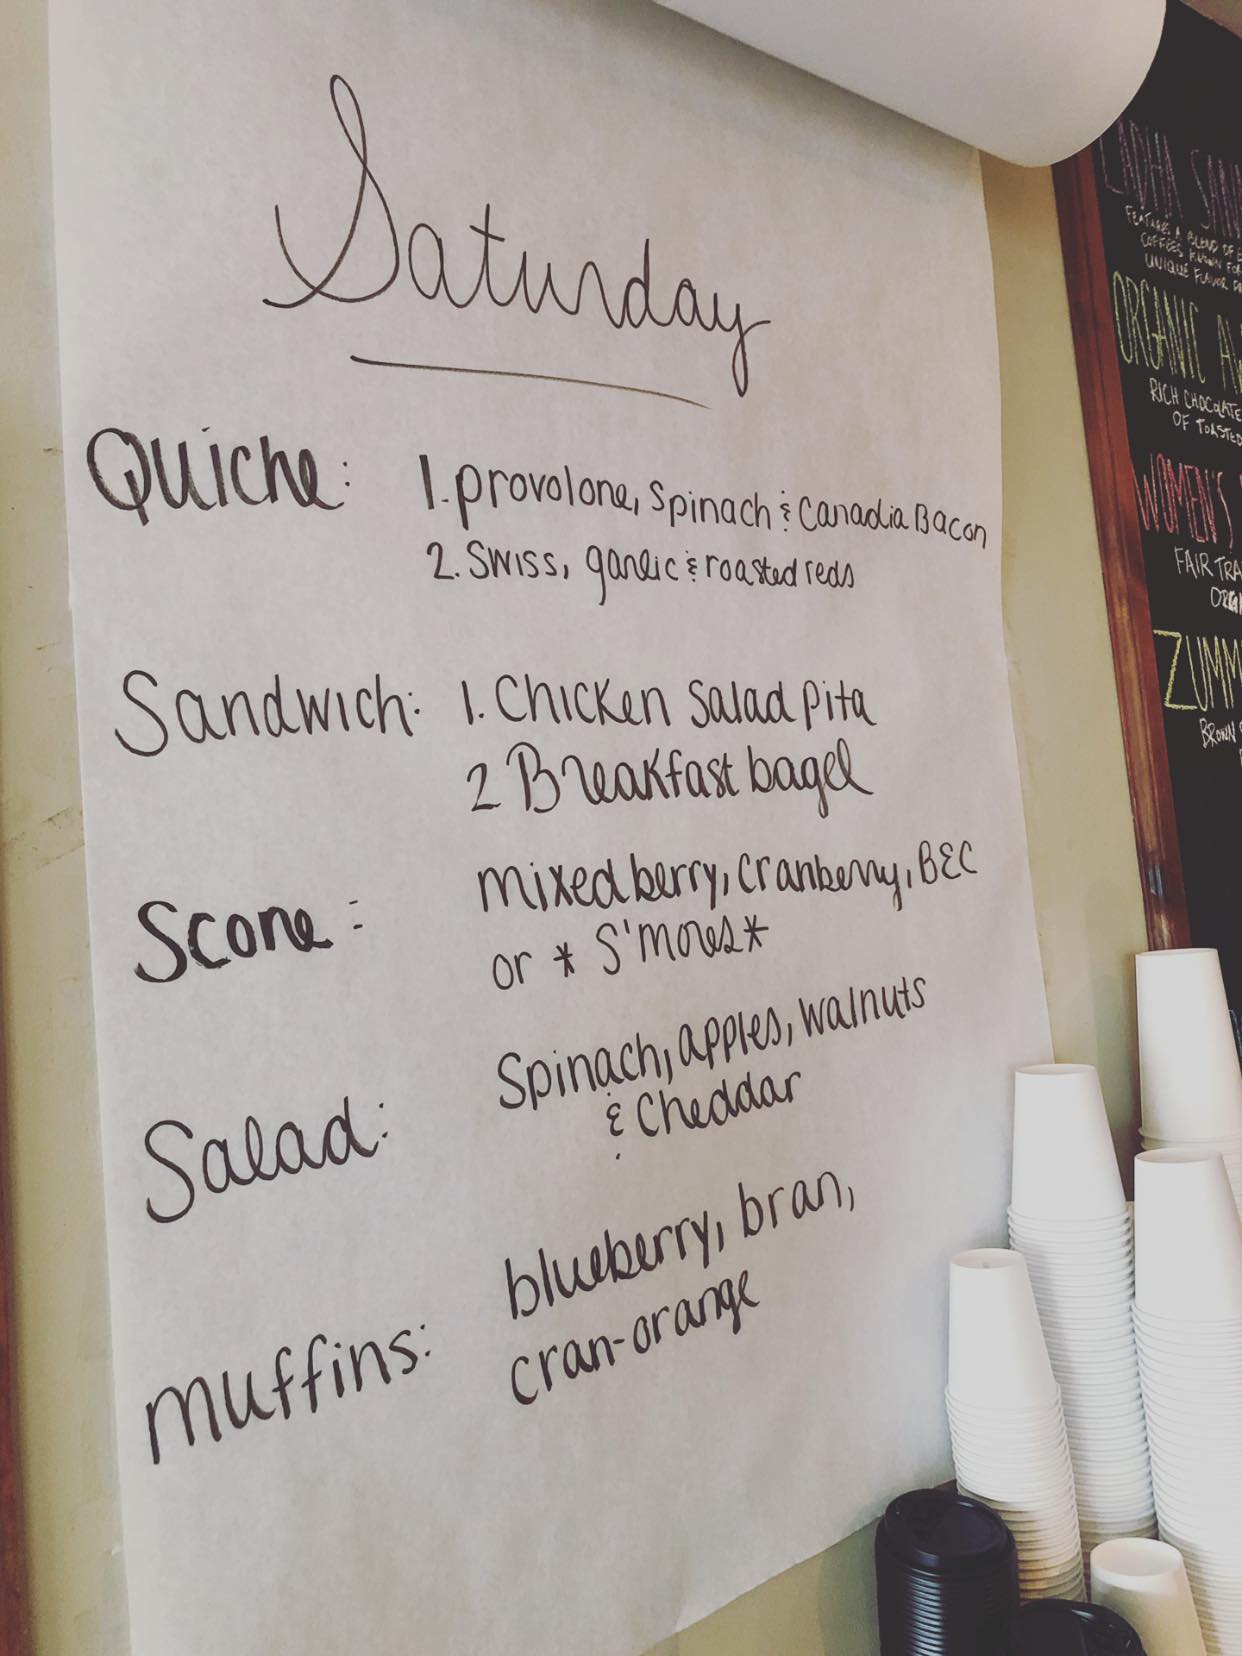 Saturday
Quiche: 1. provolone, Spinach & Canadia Bacon
2. Swiss, garlic & roasted reds
Sandwich: 1. Chicken Salad Pita
2 Breakfast bagel
Scone: mixed berry, cranberry, BEC
or * S'mores *
Salad: Spinach, apples, walnuts
& Cheddar
muffins: blueberry, bran,
cran-orange
FEATURES A BLEND OF
COFFEES KNOWN FOR
UNIQUE FLAVOR
ORGANIC
RICH CHOCOLATE
OF TOASTED
WOMEN'S
FAIR
BROWN